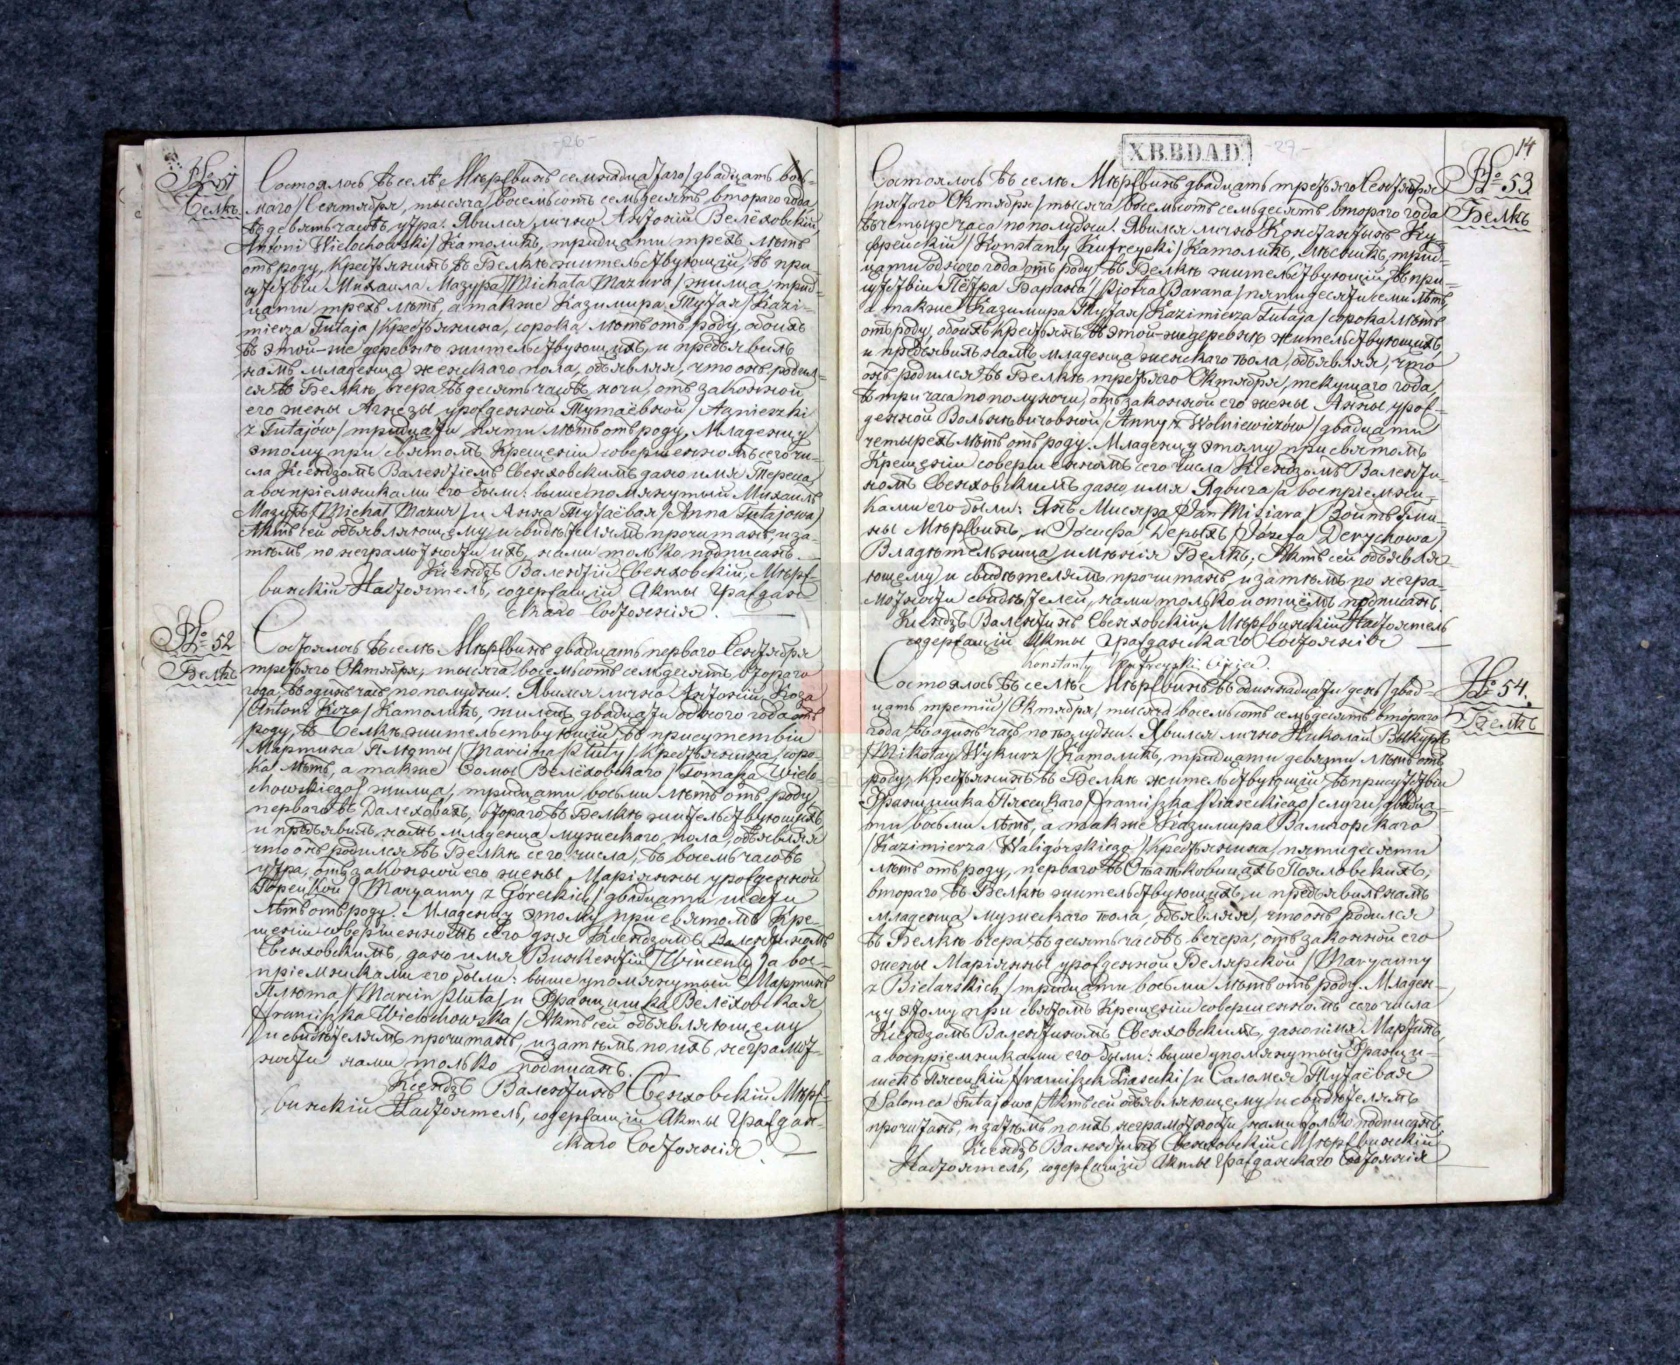 -26-
№ 51
Белкъ
Состоялось въ селѣ Мѣржвинъ семнадцатаго/двадцать вось-
маго/Сентября, тысяча восемьсотъ семьдесятъ втораго года
въ девять часовъ утра. Явился лично Антоній Велёховскій
/Antoni Wielochowski/ Католикъ, тридцати трехъ лѣтъ
отъ роду, крестьянинъ въ Белкѣ жительствующій, въ при-
сутствіи Михаила Мазура /Michała Mazura/ жильца, трид-
цати трехъ лѣтъ, а также Казимира Тутая /Kazi-
mierza Tutaja/ крестьянина, сорока лѣтъ отъ роду, обоихъ
въ этой-же деревнѣ жительствующихъ, и предъявилъ
намъ младенца женскаго пола, объявляя, что онъ родил-
ся въ Белкѣ, вчера въ десять часовъ ночи, отъ законной
его жены Агнезы урожденной Тутаёвной /Agnieszki
z Tutajów/ тридцати пяти лѣтъ отъ роду. Младенцу
этому при святомъ Крещеніи совершенномъ сего чи-
сла Ксендзомъ Валентіемъ Свенховскимъ дано имя Тереса,
а воспріемниками его были: вышепомянутый Михаилъ
Мазуръ /Michał Mazur/ и Анна Тутаёвая /Anna Tutajowa/
Актъ сей объявляющему и свидѣтелямъ прочитанъ, иза-
тѣмъ, по неграмотности ихъ, нами только подписанъ.
Ксендзъ Валентій Свенховскій, Мѣрж-
винскій Настоятель, содержащій Акты Граждан-
скаго Состоянія.
№ 52
Белкъ
Состоялось въ селѣ Мѣржвинъ двадцать перваго Сентября
третьяго Октября, тысяча восемьсотъ семьдесятъ втораго
года, въ одинъ часъ по полудни. Явился лично Антоній Коза
/Antoni Koza/ Католикъ, жилецъ, двадцати одного года отъ
роду, въ Белкѣ жительствующій, въ присутствіи
Мартина Плюты /Marcina Pluty/ крестьянина, соро-
ка лѣтъ, а также Томы Велёховскаго /Tomasza Wielo-
chowskiego/ жильца, тридцати восьми лѣтъ отъ роду
перваго въ Далеховахъ, втораго въ Белкѣ жительствующихъ,
и предъявилъ намъ младенца мужескаго пола, объявляя
что онъ родился въ Белкѣ сего числа, въ восемь часовъ
утра, отъ законной его жены Маріянны урожденной
Горецкой /Maryanny z Goreckich/ двадцати шести
лѣтъ отъ роду. Младенцу этому при святомъ Кре-
щеніи совершенномъ сего дня Ксендзомъ Валентиномъ
Свенховскимъ, дано имя Винкентій /Wincenty/ а вос-
пріемниками его были: вышеупомянутый Мартинъ
Плюта /Marcin Pluta/ и Францишка Велёховская
/Franciszka Wielochowska/ Актъ сей объявляющему
и свидѣтелямъ прочитанъ, изатѣмъ по ихъ неграмот-
ности нами только подписанъ.
Ксендзъ Валентинъ Свенховскій Мѣрж-
винскій Настоятель, содержащій Акты Граждан-
скаго Состоянія.
X.B.B.D.A.D.
-27-
14
№ 53
Белкъ
Состоялось въ селѣ Мѣржвинъ двадцать третьяго Сентября
/пятаго Октября/ тысяча восемьсотъ семьдесятъ втораго года
въ четыре часа по полудни. Явился лично Константынъ Ку-
фрейскій /Konstanty Kufreyski/ Католикъ, Лѣсникъ, трид-
цати одного года отъ роду, въ Белкѣ жительствующій, въ при-
сутствіи Петра Барана /Piotra Barana/ пятидесяти семи лѣтъ,
а также Казимира Тутая /Kazimierza Tutaja/ сорока лѣтъ
отъ роду, обоихъ крестьянъ въ этой-же деревнѣ жительствующихъ
и предъявилъ намъ младенца женскаго пола, объявляя, что
онъ родился въ Белкѣ третьяго Октября, текущаго года,
въ три часа по полуночи, отъ законной его жены Анны урож-
денной Вольнѣвичовной /Anny z Wolniewiczów/ двадцати
четырехъ лѣтъ отъ роду. Младенцу этому при святомъ
Крещеніи совершенномъ сего числа Ксендзомъ Валенти-
номъ Свенховскимъ дано имя Ядвига, а воспріемни-
ками его были: Янъ Мисяра /Jan Misiara/ Войтъ Гми-
ны Мѣржвинъ, и Іосифа Дерыхъ /Józefa Derychowa/
Владѣтельница имѣнія Белкъ, Актъ сей объявля-
ющему и свидѣтелямъ прочитанъ, изатѣмъ по негра-
мотности свидѣтелей, нами только и отцёмъ подписанъ.
Ксендзъ Валентинъ Свенховскій, Мѣржвинскій Настоятель
содержащій Акты Гражданскаго Состоянія
Konstanty Kufreyski ojciec.
№ 54.
Белкъ
Состоялось въ селѣ Мѣржвинъ въ одиннадцати день/двад-
цать третій/ Октября/ тысяча восемьсотъ семьдесятъ втораго
года, въ одинъ часъ по полудни. Явился лично Николай Выкуръ
/Mikołay Wykurz/ Католикъ, тридцати девяти лѣтъ отъ
роду, крестьянинъ въ Белкѣ жительствующій въ присутствіи
Францишка Пясецкаго /Franciszka Piaseckiego/ слуги, двадца-
ти восьми лѣтъ, а также Казимира Валигорскаго
/Kazimierza Waligórskiego/ крестьянина, пятидесяти
лѣтъ отъ роду, перваго въ
втораго въ Белкѣ жительствующихъ, и предъявилъ намъ
младенца мужескаго пола, объявляя, что онъ родился
въ Белкѣ вчера въ десять часовъ вечера, отъ законной его
жены Маріянны урожденной Белярской /Maryanny
z Bielarskich/ тридцати восьми лѣтъ отъ роду. Младен-
цу этому при святомъ Крещеніи совершенномъ сего числа
Ксендзомъ Валентиномъ Свенховскимъ, дано имя Мартинъ,
а воспріемниками его были: вышеупомянутый Франци-
шекъ Пясецкій /Franciszek Piasecki/ и Саломея Тутаёвая
/Salomea Tutajowa/ Актъ сей объявляющему и свидѣтелямъ
прочитанъ, изатѣмъ по ихъ неграмотности, нами только подписанъ.
Ксендзъ Валентинъ Свенховскій Мѣржвинскій
Настоятель, содержащій Акты Гражданскаго Состоянія